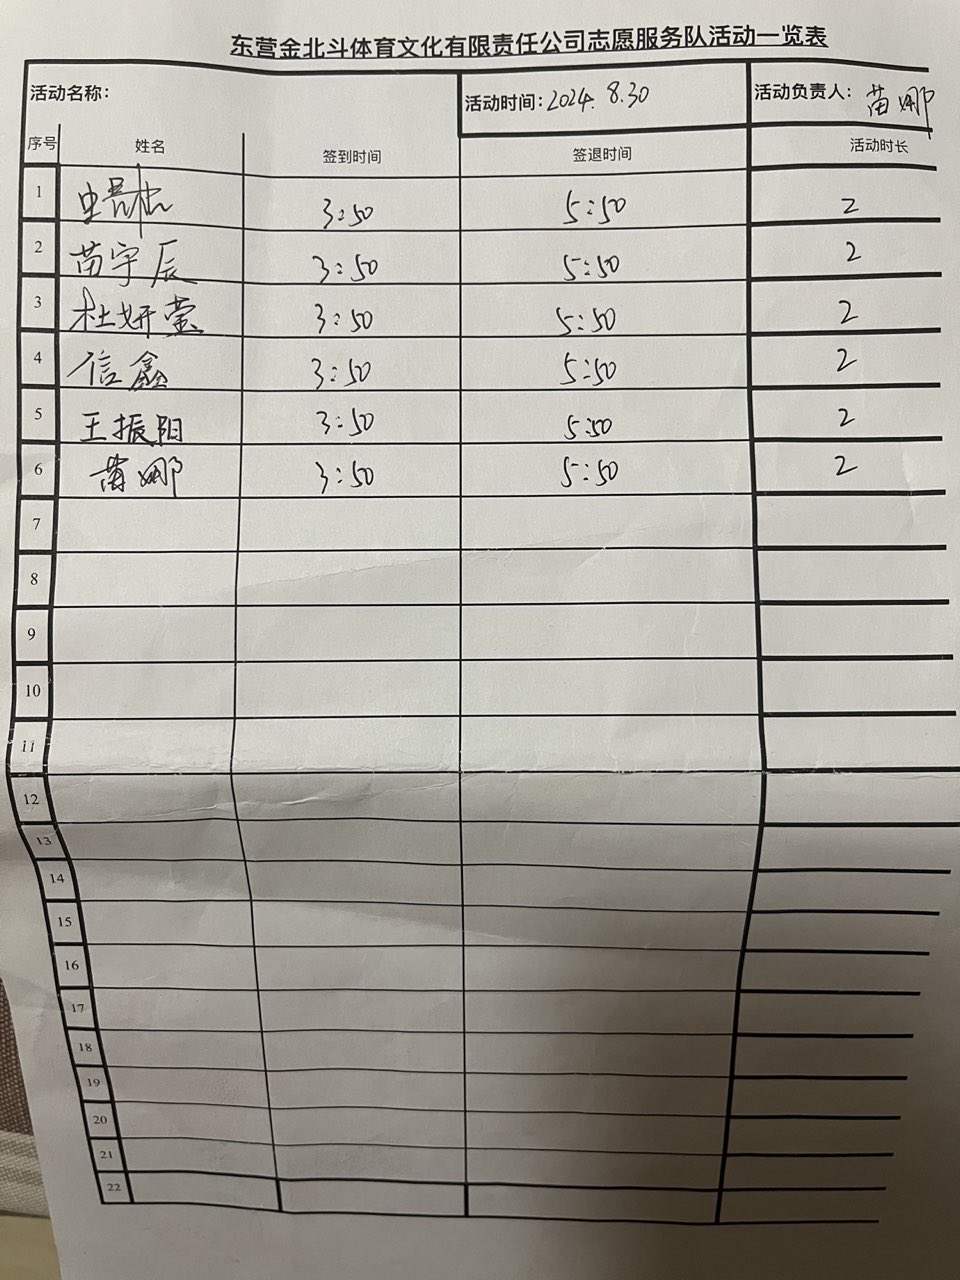 东营金北斗体育文化有限责任公司志愿服务队活动一览表
活动名称： 活动时间：2024.8.30 活动负责人：苗娜
序号 姓名 签到时间 签退时间 活动时长
1 3:50 5:50 2
2 苗宇辰 3:50 5:50 2
3 杜妍莹 3:50 5:50 2
4 信鑫 3:50 5:50 2
5 王振阳 3:50 5:50 2
6 苗娜 3:50 5:50 2
7
8
9
10
11
12
13
14
15
16
17
18
19
20
21
22